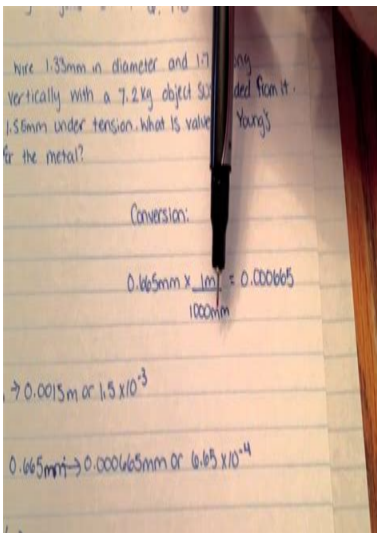 wire 1.33mm in diameter and 1.7 ong
vertically with a 7.2kg object su ded from it.
1.56mm under tension. What is value Young's
for the metal?
Conversion:
0.665mm x 1m = 0.000665
1000mm
→ 0.0015m or 1.5 x10⁻³
0.665mm → 0.000665mm or 6.65 x10⁻⁴